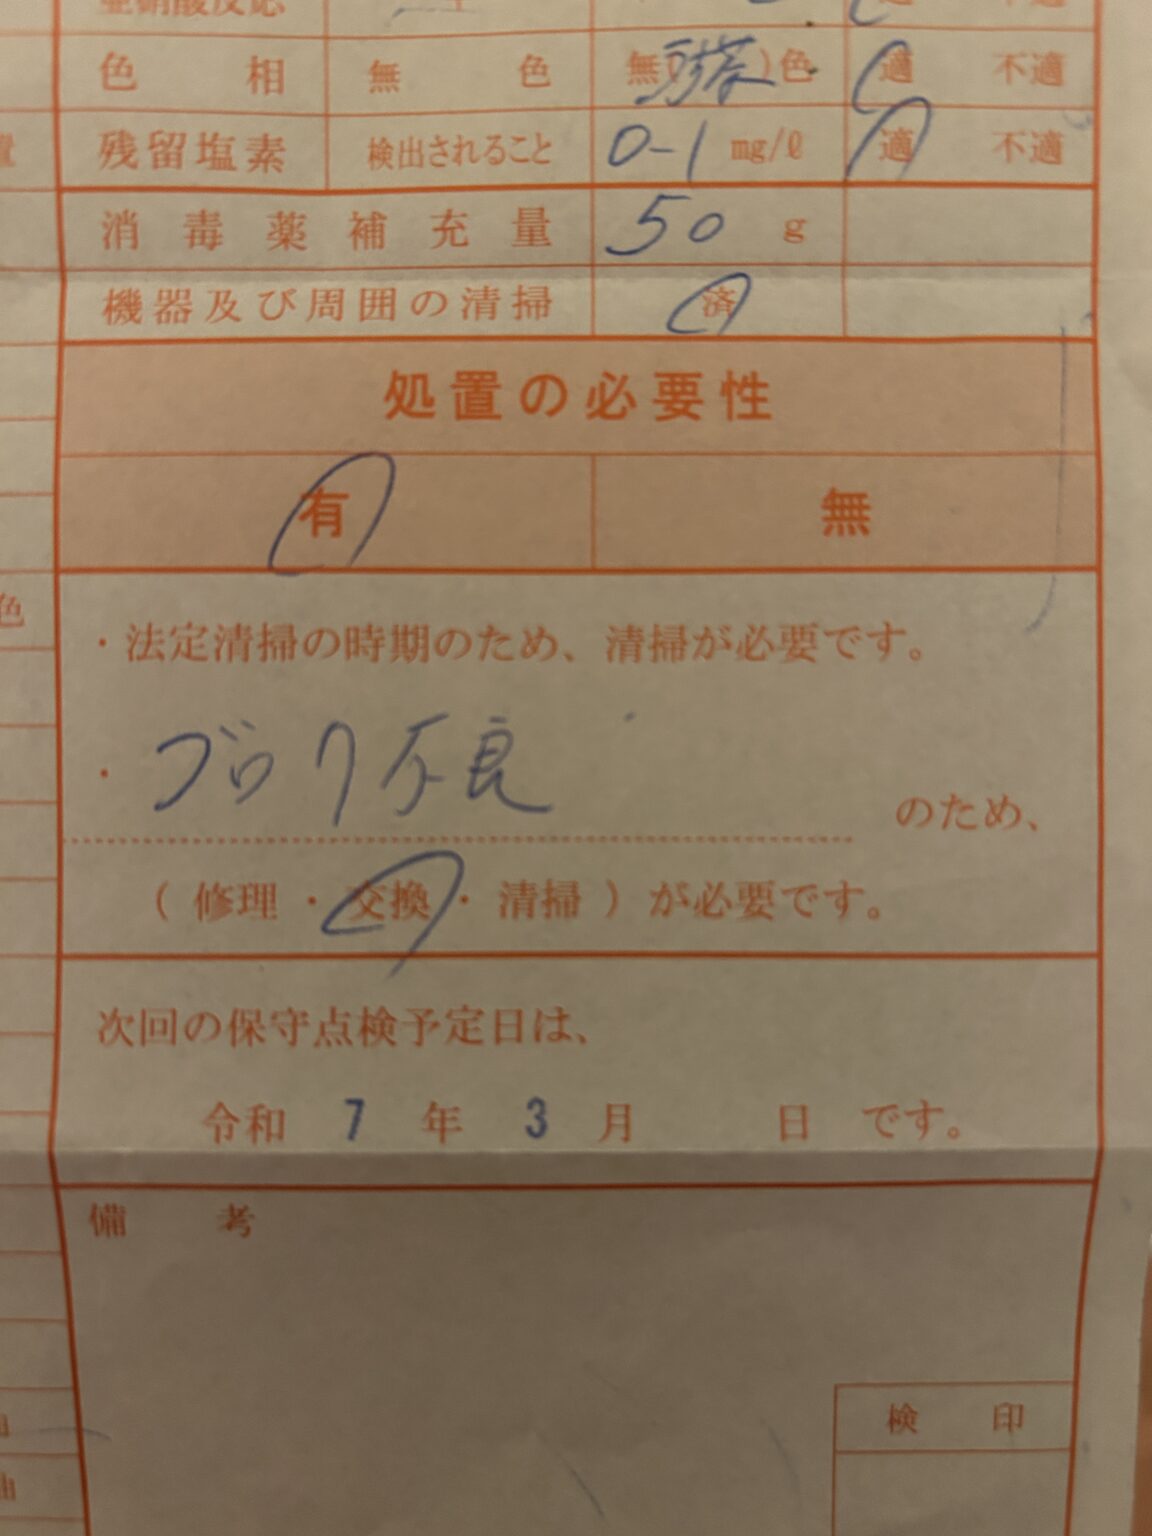 色相 無色 無( )色 適 不適
置
残留塩素 検出されること 0-1 mg/ℓ 適 不適
消毒薬補充量 50 g
機器及び周囲の清掃 済
処置の必要性
有 無
色
・法定清掃の時期のため、清掃が必要です。
・ブロワ不良 のため、
(修理・交換・清掃)が必要です。
次回の保守点検予定日は、
令和 7 年 3 月 日 です。
備考
検印